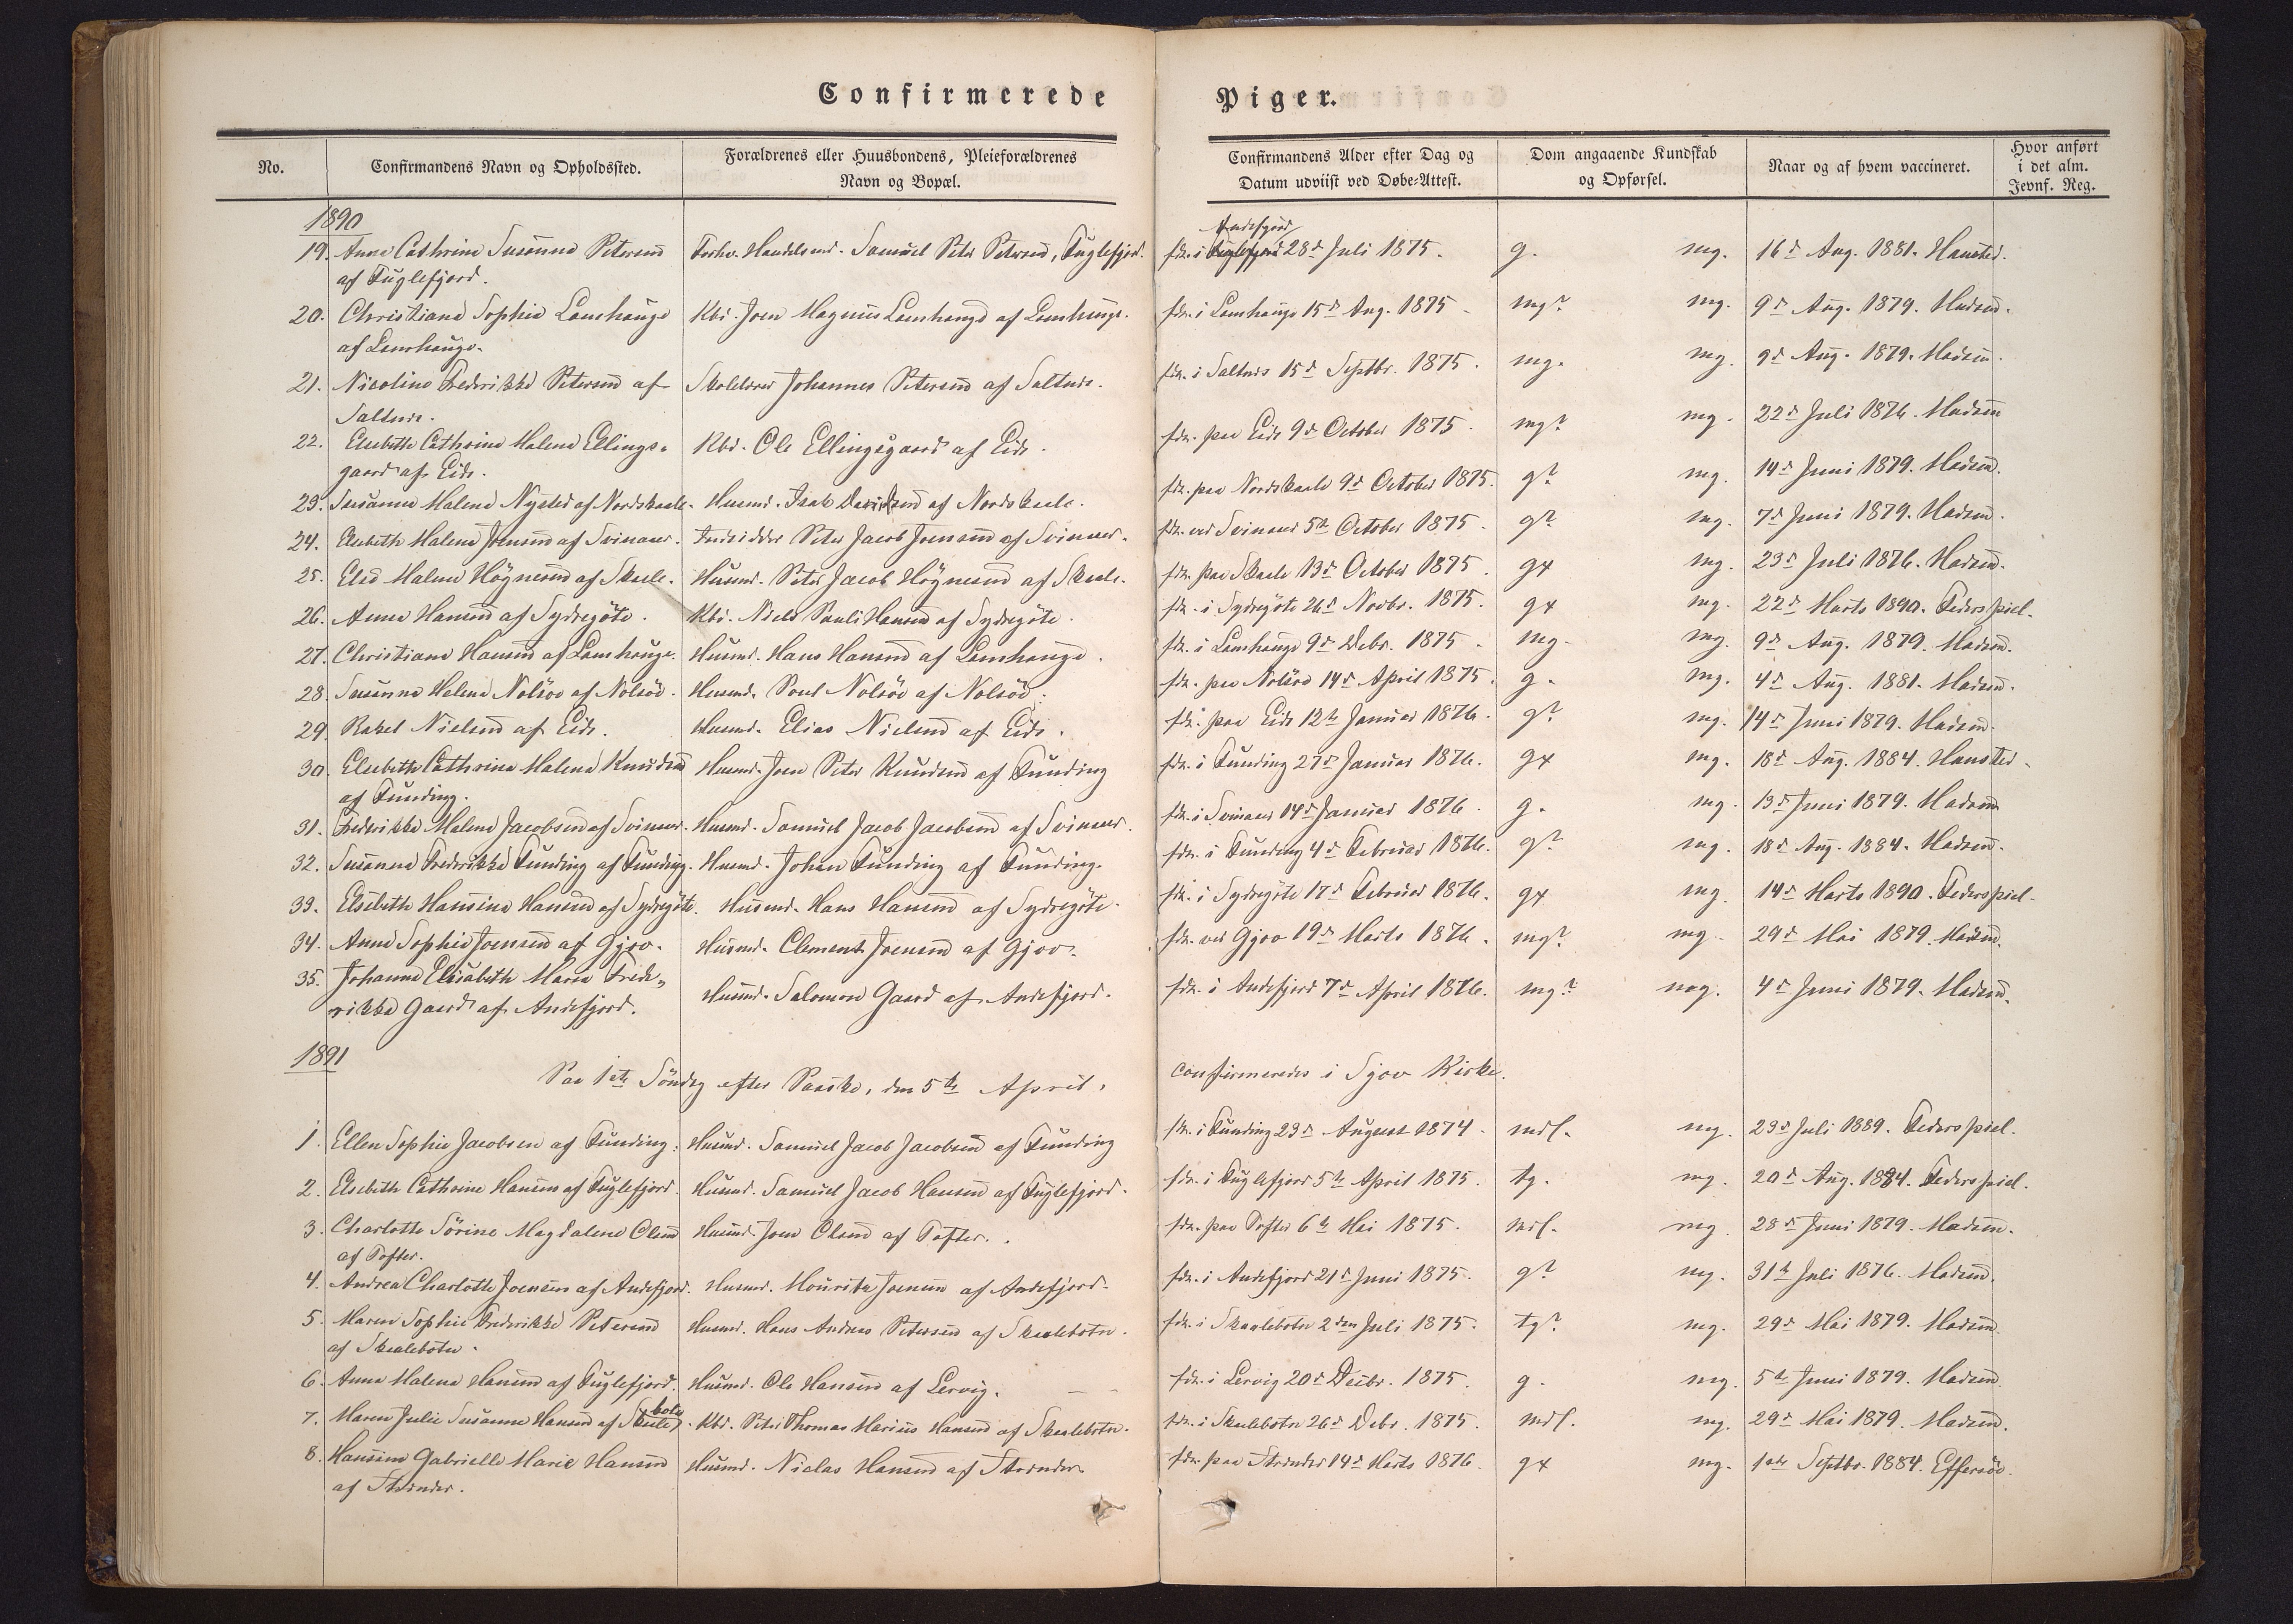 Confirmerede Piger.
No. Confirmandens Navn og Opholdssted. Forældrenes eller Huusbondens, Pleieforældrenes Navn og Bopæl. Confirmandens Alder efter Dag og Datum udviist ved Døbe-Attest. Dom angaaende Kundskab og Opførsel. Naar og af hvem vaccineret. Hvor anført i det alm. Jevnf. Reg.
1890
19. Anna Cathrine Susanna Petersen Forhv. Handelsmd. Samuel Peter Petersen, Fuglefjord. fdt. i Andefjord 28d Juli 1875. g. mg. 16d Aug. 1881. Hansted.
af Fuglefjord.
20. Christiane Sophie Lamhauge Kbd. Joen Magnus Lamhauge af Lamhauge. fdt. i Lamhauge 15d Aug. 1875 mg? mg. 9d Aug. 1879. Madsen.
af Lamhauge.
21. Nicoline Fredrikke Petersen af Skolelærer Johannes Petersen af Saltnes. fdt. i Saltnes 15d Septbr. 1875. mg. mg. 9d Aug. 1879. Madsen.
Saltnes.
22. Elsebeth Cathrine Malene Ellings- Kbd. Ole Ellingsgaard af Eide. fdt. paa Eide 9d October 1875. mg? mg. 22d Juli 1876. Madsen
gaard af Eide.
23. Susanna Malene Nysted af Nordskaale. Husmd. Isak Davidsen af Nordskaale. fdt. paa Nordskaale 9d October 1875. g? mg. 14d Juni 1879. Madsen.
24. Elsebeth Malene Joensen af Svinaaer. Indsidder Peter Jacob Joensen af Svinaaer. fdt. ved Svinaaer 5te October 1875. g? mg. 7d Juni 1879. Madsen.
25. Else Malene Högnesen af Skaale. Husmd. Peter Jacob Högnesen af Skaale. fdt. paa Skaale 13d October 1875. gx mg. 23d Juli 1876. Madsen.
26. Anna Hansen af Sydregöte. Kbd. Niels Pauli Hansen af Sydregöte. fdt. i Sydregöte 26d Novbr. 1875. gx mg. 22d Marts 1890. Federspiel.
27. Christiane Hansen af Lamhauge. Husmd. Hans Hansen af Lamhauge. fdt. i Lamhauge 9d Debr. 1875. mg. mg. 9d Aug. 1879. Madsen.
28. Susanna Helene Nolsöe af Nolsöe. Husmd. Poul Nolsöe af Nolsöe. fdt. paa Nolsöe 14d April 1875. g. mg. 4d Aug. 1881. Madsen.
29. Rakel Nielsen af Eide. Husmd. Elias Nielsen af Eide. fdt. paa Eide 12te Januar 1876. g? mg. 14d Juni 1879. Madsen.
30. Elsebeth Cathrine Malene Knudsen Husmd. Joen Peter Knudsen af Funding fdt. i Funding 27d Januar 1876. gx mg. 18d Aug. 1884. Hansted.
af Funding.
31. Fredrikke Malene Jacobsen af Svinaaer. Husmd. Samuel Jacob Jacobsen af Svinaaer. fdt. i Svinaaer 14d Januar 1876. g. mg. 13d Juni 1879. Madsen
32. Susanna Fredrikke Funding af Funding. Husmd. Johan Funding af Funding. fdt. i Funding 4d Februar 1876. g? mg. 18d Aug. 1884. Madsen.
33. Elsebeth Hansine Hansen af Sydregöte. Husmd. Hans Hansen af Sydregöte. fdt. i Sydregöte 17d Februar 1876. gx mg. 14d Marts 1890. Federspiel.
34. Anna Sophie Joensen af Gjov. Husmd. Clement Joensen af Gjov. fdt. ved Gjov 19d Marts 1876. mg? mg. 29d Mai 1879. Madsen.
35. Johanna Elisabeth Maria Fred- Husmd. Salomon Gaard af Andefjord. fdt. i Andefjord 7d April 1876. mg? mg. 4d Juni 1879. Madsen.
rikka Gaard af Andefjord.
1891
Paa 1ste Söndag efter Paaske, den 5te April, confirmeredes i Gjov Kirke.
1. Ellen Sophie Jacobsen af Funding. Husmd. Samuel Jacob Jacobsen af Funding fdt. i Funding 23d August 1874. mdl. mg. 23d Juli 1889. Federspiel.
2. Elsebeth Cathrine Hansen af Fuglefjord. Husmd. Samuel Jacob Hansen af Fuglefjord. fdt. i Fuglefjord 5te April 1875. tg. mg. 20d Aug. 1884. Federspiel.
3. Charlotte Sörine Magdalene Olsen Husmd. Joen Olsen af Tofter. fdt. paa Tofter 6te Mai 1875. mdl. mg. 28d Juni 1879. Madsen.
af Tofter.
4. Andrea Charlotte Joensen af Andefjord. Husmd. Mouritz Joensen af Andefjord. fdt. i Andefjord 21d Juni 1875. g? mg. 31te Juli 1876. Madsen.
5. Maren Sophie Fredrikke Petersen Husmd. Hans Andreas Petersen af Skaalebotn. fdt. i Skaalebotn 2den Juli 1875. tg? mg. 29d Mai 1879. Madsen.
af Skaalebotn.
6. Anna Malene Hansen af Fuglefjord. Husmd. Ole Hansen af Lervig. fdt. i Lervig 20d Decbr. 1875. g. mg. 5te Juni 1879. Madsen.
7. Maren Julie Susanne Hansen af Skaalebotn. Kbd. Peter Thomas Marius Hansen af Skaalebotn. fdt. i Skaalebotn 26d Debr. 1875. mdl. mg. 29d Mai 1879. Madsen.
8. Hansine Gabrielle Marie Hansen Husmd. Niclas Hansen af Strænder. fdt. paa Strænder 14d Marts 1876. gx mg. 1ste Septbr. 1884. Effersöe.
af Strænder.